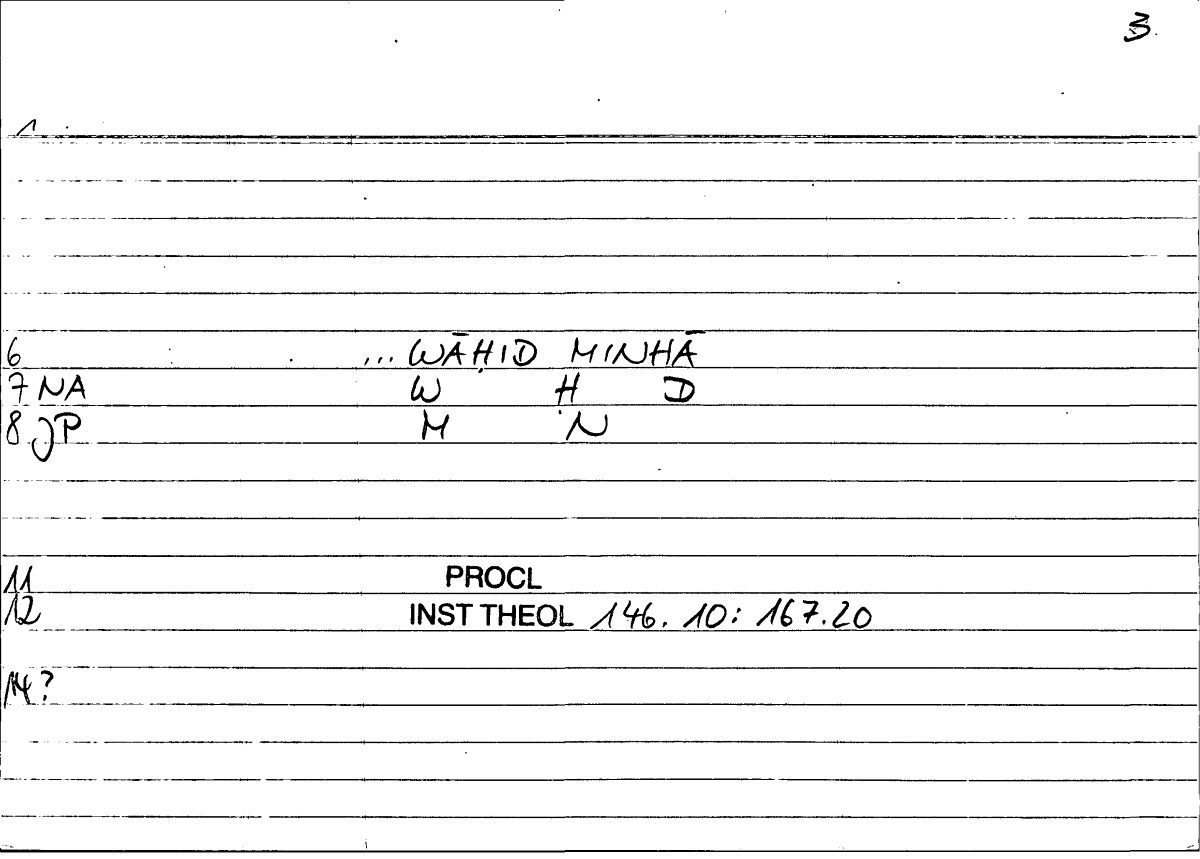 3
1
6 ... WĀḤID MINHĀ
7 NA W Ḥ D
8 JP M N
11 PROCL
12 INST THEOL 146. 10: 167.20
14?